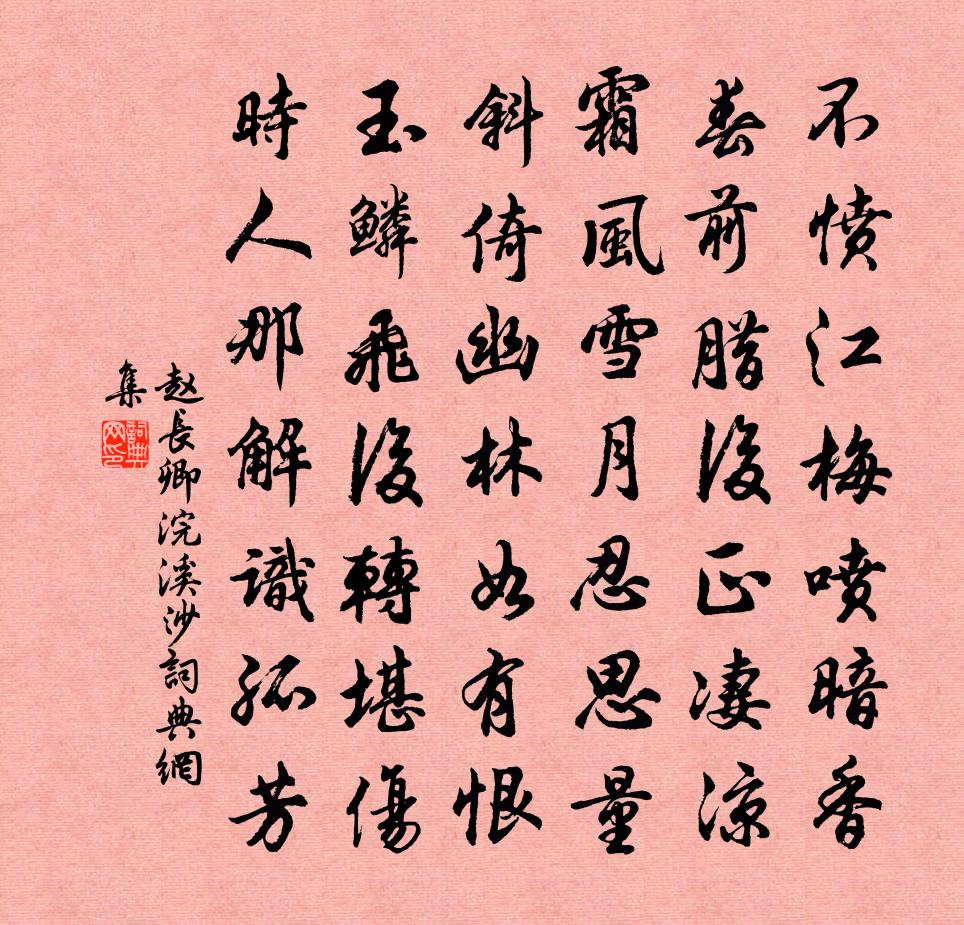 不憤江梅噴暗香
春前腊後正凄凉
霜風雪月忍思量
斜倚幽林如有恨
玉鳞飛後轉堪傷
時人那解識孤芳
赵長卿浣溪沙詞典網
集
詞典
网印